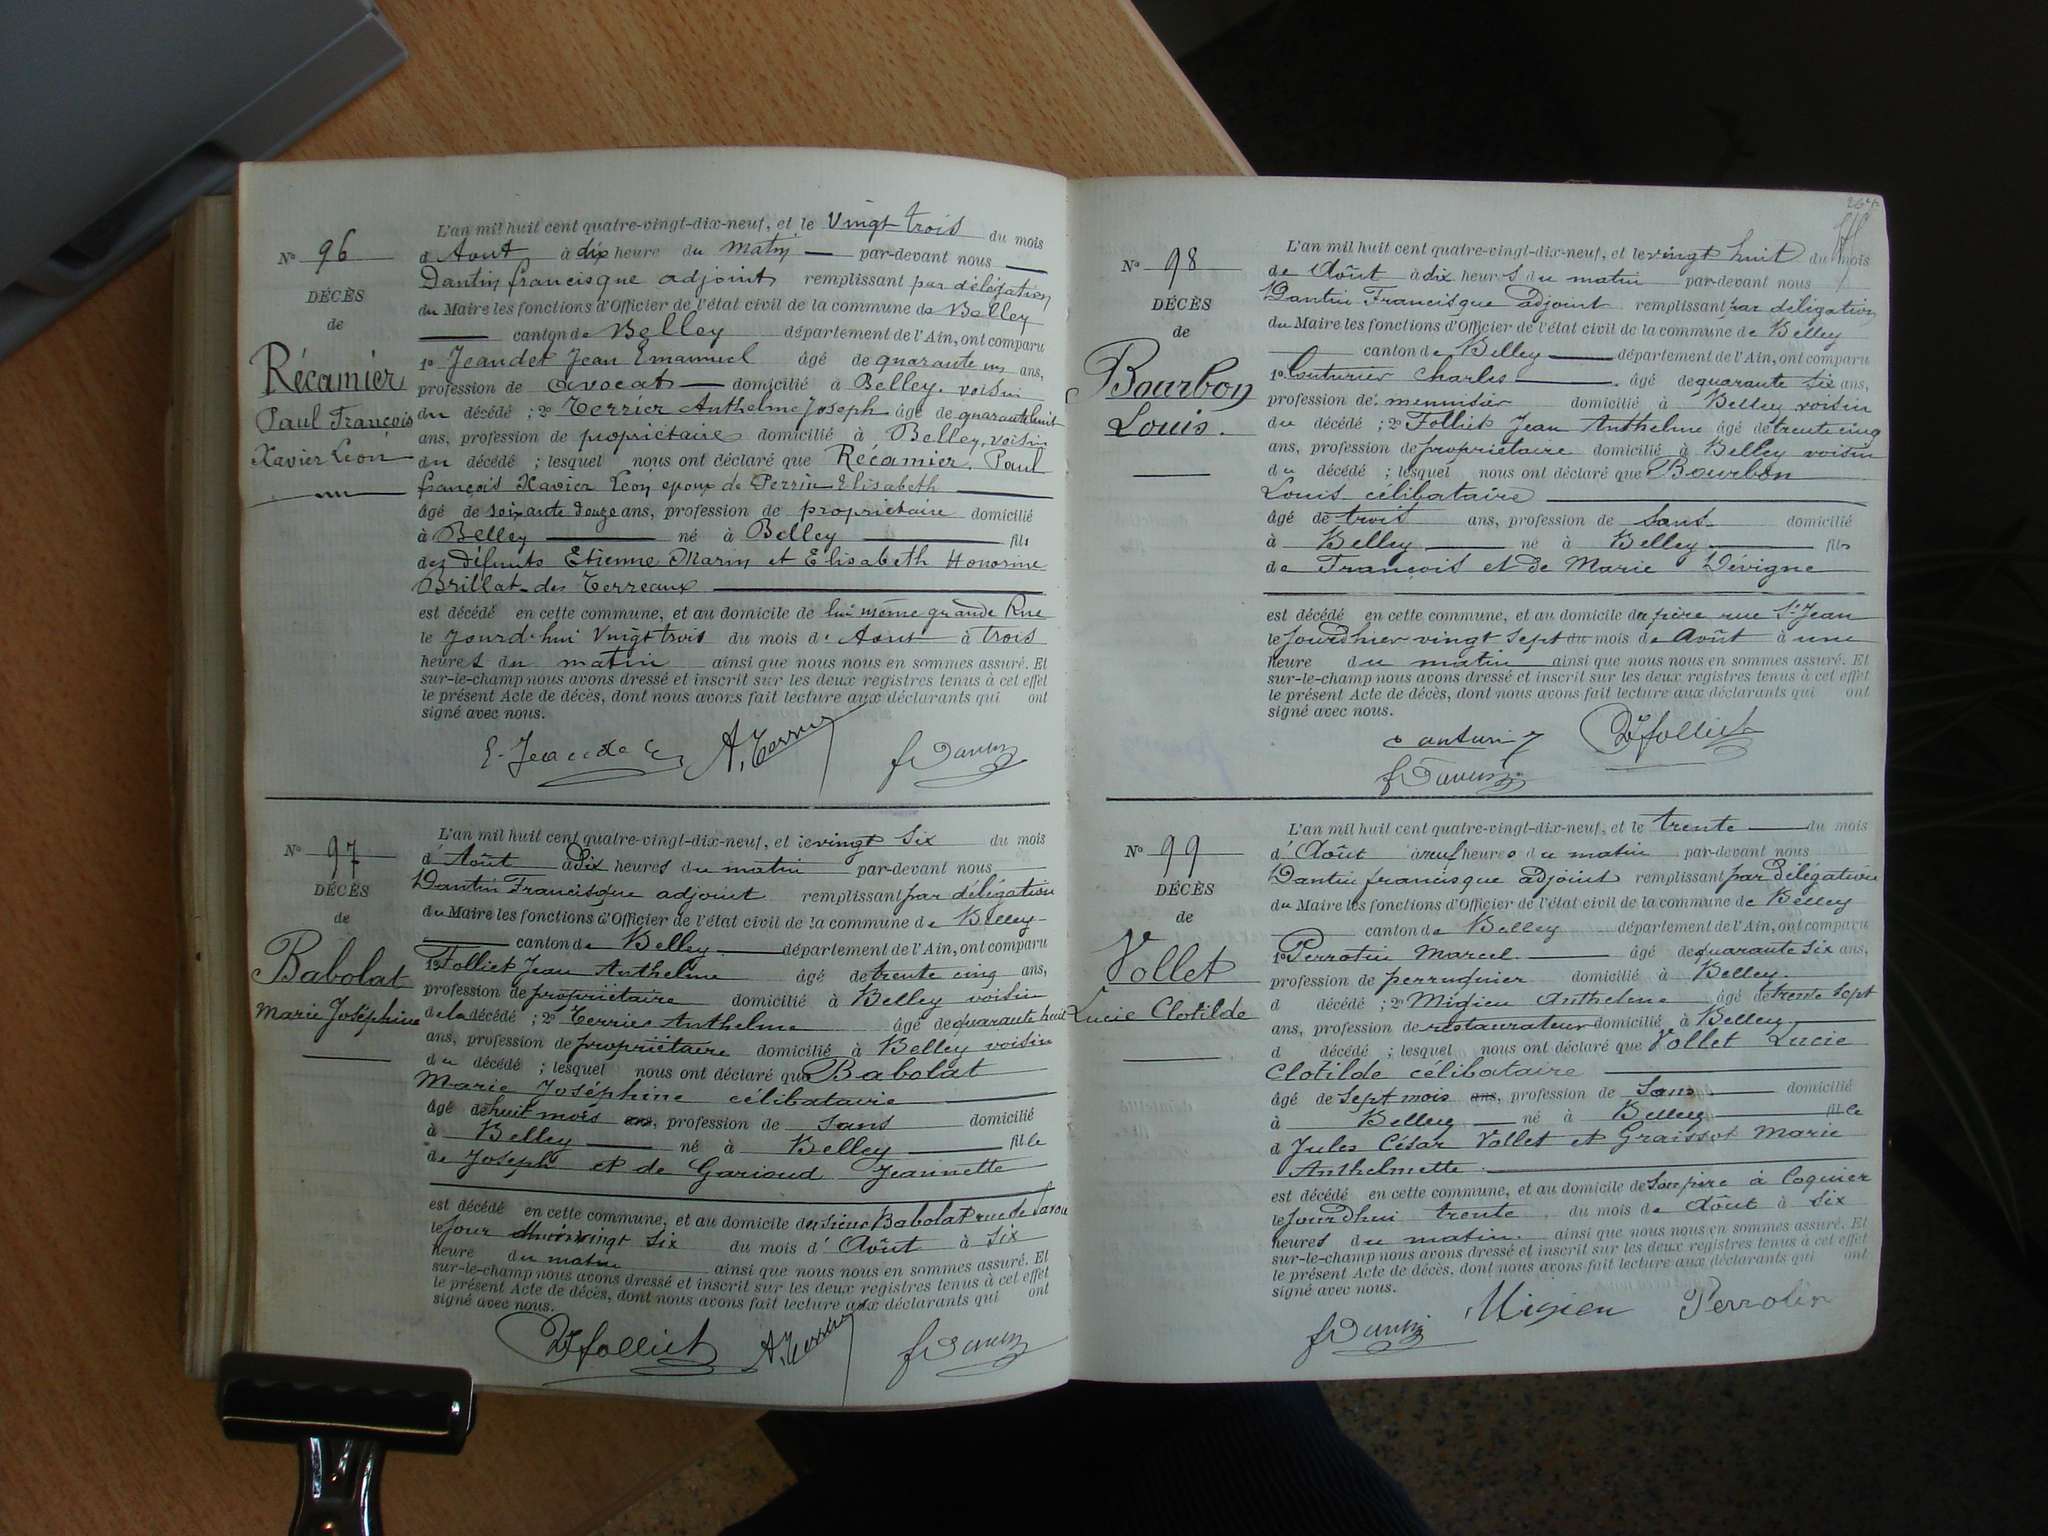 L'an mil huit cent quatre-vingt-dix-neuf, et le Vingt trois du mois
No 96
d'Aout à dix heure du matin par-devant nous
Dantin francisque adjoint remplissant par délégation
DÉCÈS
du Maire les fonctions d'Officier de l'état civil de la commune de Belley
de
canton de Belley département de l'Ain, ont comparu
1o Jeandet Jean Emanuel âgé de quarante un ans,
Récamier
profession de avocat domicilié à Belley. voisin
Paul François
du décédé ; 2o Terrier Anthelme Joseph âgé de quarante huit
ans, profession de propriétaire domicilié à Belley, voisin
Xavier Léon
du décédé ; lesquel nous ont déclaré que Récamier. Paul
françois Xavier Léon epoux de Perrin Elisabeth
âgé de soixante douze ans, profession de propriétaire domicilié
à Belley né à Belley fils
des défunts Etienne Marin et Elisabeth Honorine
Brillat des Terreaux
est décédé en cette commune, et au domicile de lui même grande Rue
le Jourd'hui Vingt trois du mois d'Aout à trois
heures du matin ainsi que nous nous en sommes assuré. Et
sur-le-champ nous avons dressé et inscrit sur les deux registres tenus à cet effet
le présent Acte de décès, dont nous avons fait lecture aux déclarants qui ont
signé avec nous.
E. Jeandet A. Terrier f Dantin
L'an mil huit cent quatre-vingt-dix-neuf, et le vingt six du mois
No 97
d'Août à Dix heures du matin par-devant nous
DÉCÈS
Dantin Francisque adjoint remplissant par délégation
de
du Maire les fonctions d'Officier de l'état civil de la commune de Belley
canton de Belley département de l'Ain, ont comparu
Babolat
1o Folliet Jean Anthelme âgé de trente cinq ans,
profession de propriétaire domicilié à Belley voisin
Marie Joséphine
de la décédé ; 2o Terrier Anthelme âgé de quarante huit
ans, profession de propriétaire domicilié à Belley voisin
du décédé ; lesquel nous ont déclaré que Babolat
Marie Joséphine célibataire
âgé de huit mois ans, profession de sans domicilié
à Belley né à Belley fille
de Joseph et de Gariaud Jeannette
est décédé en cette commune, et au domicile du sieur Babolat rue de Savoie
le Jour vingt six du mois d'Août à six
heure du matin ainsi que nous nous en sommes assuré. Et
sur-le-champ nous avons dressé et inscrit sur les deux registres tenus à cet effet
le présent Acte de décès, dont nous avons fait lecture aux déclarants qui ont
signé avec nous.
folliet A. Terrier f Dantin
L'an mil huit cent quatre-vingt-dix-neuf, et le vingt huit du mois
No 98
de Août à dix heures du matin par-devant nous
Dantin Francisque adjoint remplissant par délégation
DÉCÈS
du Maire les fonctions d'Officier de l'état civil de la commune de Belley
de
canton de Belley département de l'Ain, ont comparu
Bourbon
1o Couturier Charles âgé de quarante six ans,
profession de menuisier domicilié à Belley voisin
Louis.
du décédé ; 2o Folliet Jean Anthelme âgé de trente cinq
ans, profession de propriétaire domicilié à Belley voisin
du décédé ; lesquel nous ont déclaré que Bourbon
Louis célibataire
âgé de trois ans, profession de Sans domicilié
à Belley né à Belley fils
de François et de Marie Dévigne
est décédé en cette commune, et au domicile du père rue St Jean
le Jourdhier vingt sept du mois de Août à une
heure du matin ainsi que nous nous en sommes assuré. Et
sur-le-champ nous avons dressé et inscrit sur les deux registres tenus à cet effet
le présent Acte de décès, dont nous avons fait lecture aux déclarants qui ont
signé avec nous.
folliet
f Dantin
L'an mil huit cent quatre-vingt-dix-neuf, et le trente du mois
No 99
d'Août à neuf heures du matin par-devant nous
DÉCÈS
Dantin francisque adjoint remplissant par délégation
de
du Maire les fonctions d'Officier de l'état civil de la commune de Belley
canton de Belley département de l'Ain, ont comparu
Vollet
1o Perrotin Marcel âgé de quarante six ans,
profession de perruquier domicilié à Belley.
Lucie Clotilde
d décédé ; 2o Migieu Anthelme âgé de trente sept
ans, profession de restaurateur domicilié à Belley
d décédé ; lesquel nous ont déclaré que Vollet Lucie
Clotilde célibataire
âgé de sept mois ans, profession de Sans domicilié
à Belley né à Belley fille
d Jules César Vollet et Graissot Marie
Anthelmette
est décédé en cette commune, et au domicile de son père à Coquier
le Jourdhui trente du mois de Août à six
heures du matin. ainsi que nous nous en sommes assuré. Et
sur-le-champ nous avons dressé et inscrit sur les deux registres tenus à cet effet
le présent Acte de décès, dont nous avons fait lecture aux déclarants qui ont
signé avec nous.
f Dantin Migieu Perrotin